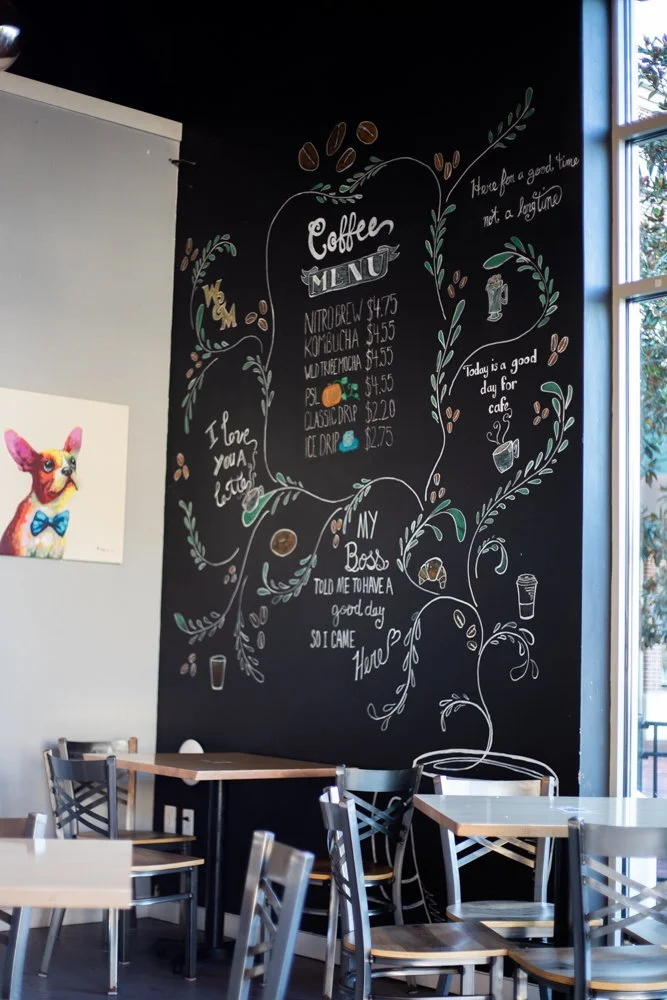 Coffee
MENU
NITRO BREW $4.75
KOMBUCHA $4.55
WILD TRIBE MOCHA $4.55
PSL $4.55
CLASSIC DRIP $2.20
ICE DRIP $2.75
Here for a good time
not a long time
W&M
Today is a good
day for
cafe
I love
you A
latte
MY
Boss
TOLD ME TO HAVE A
good day
SO I CAME
Here